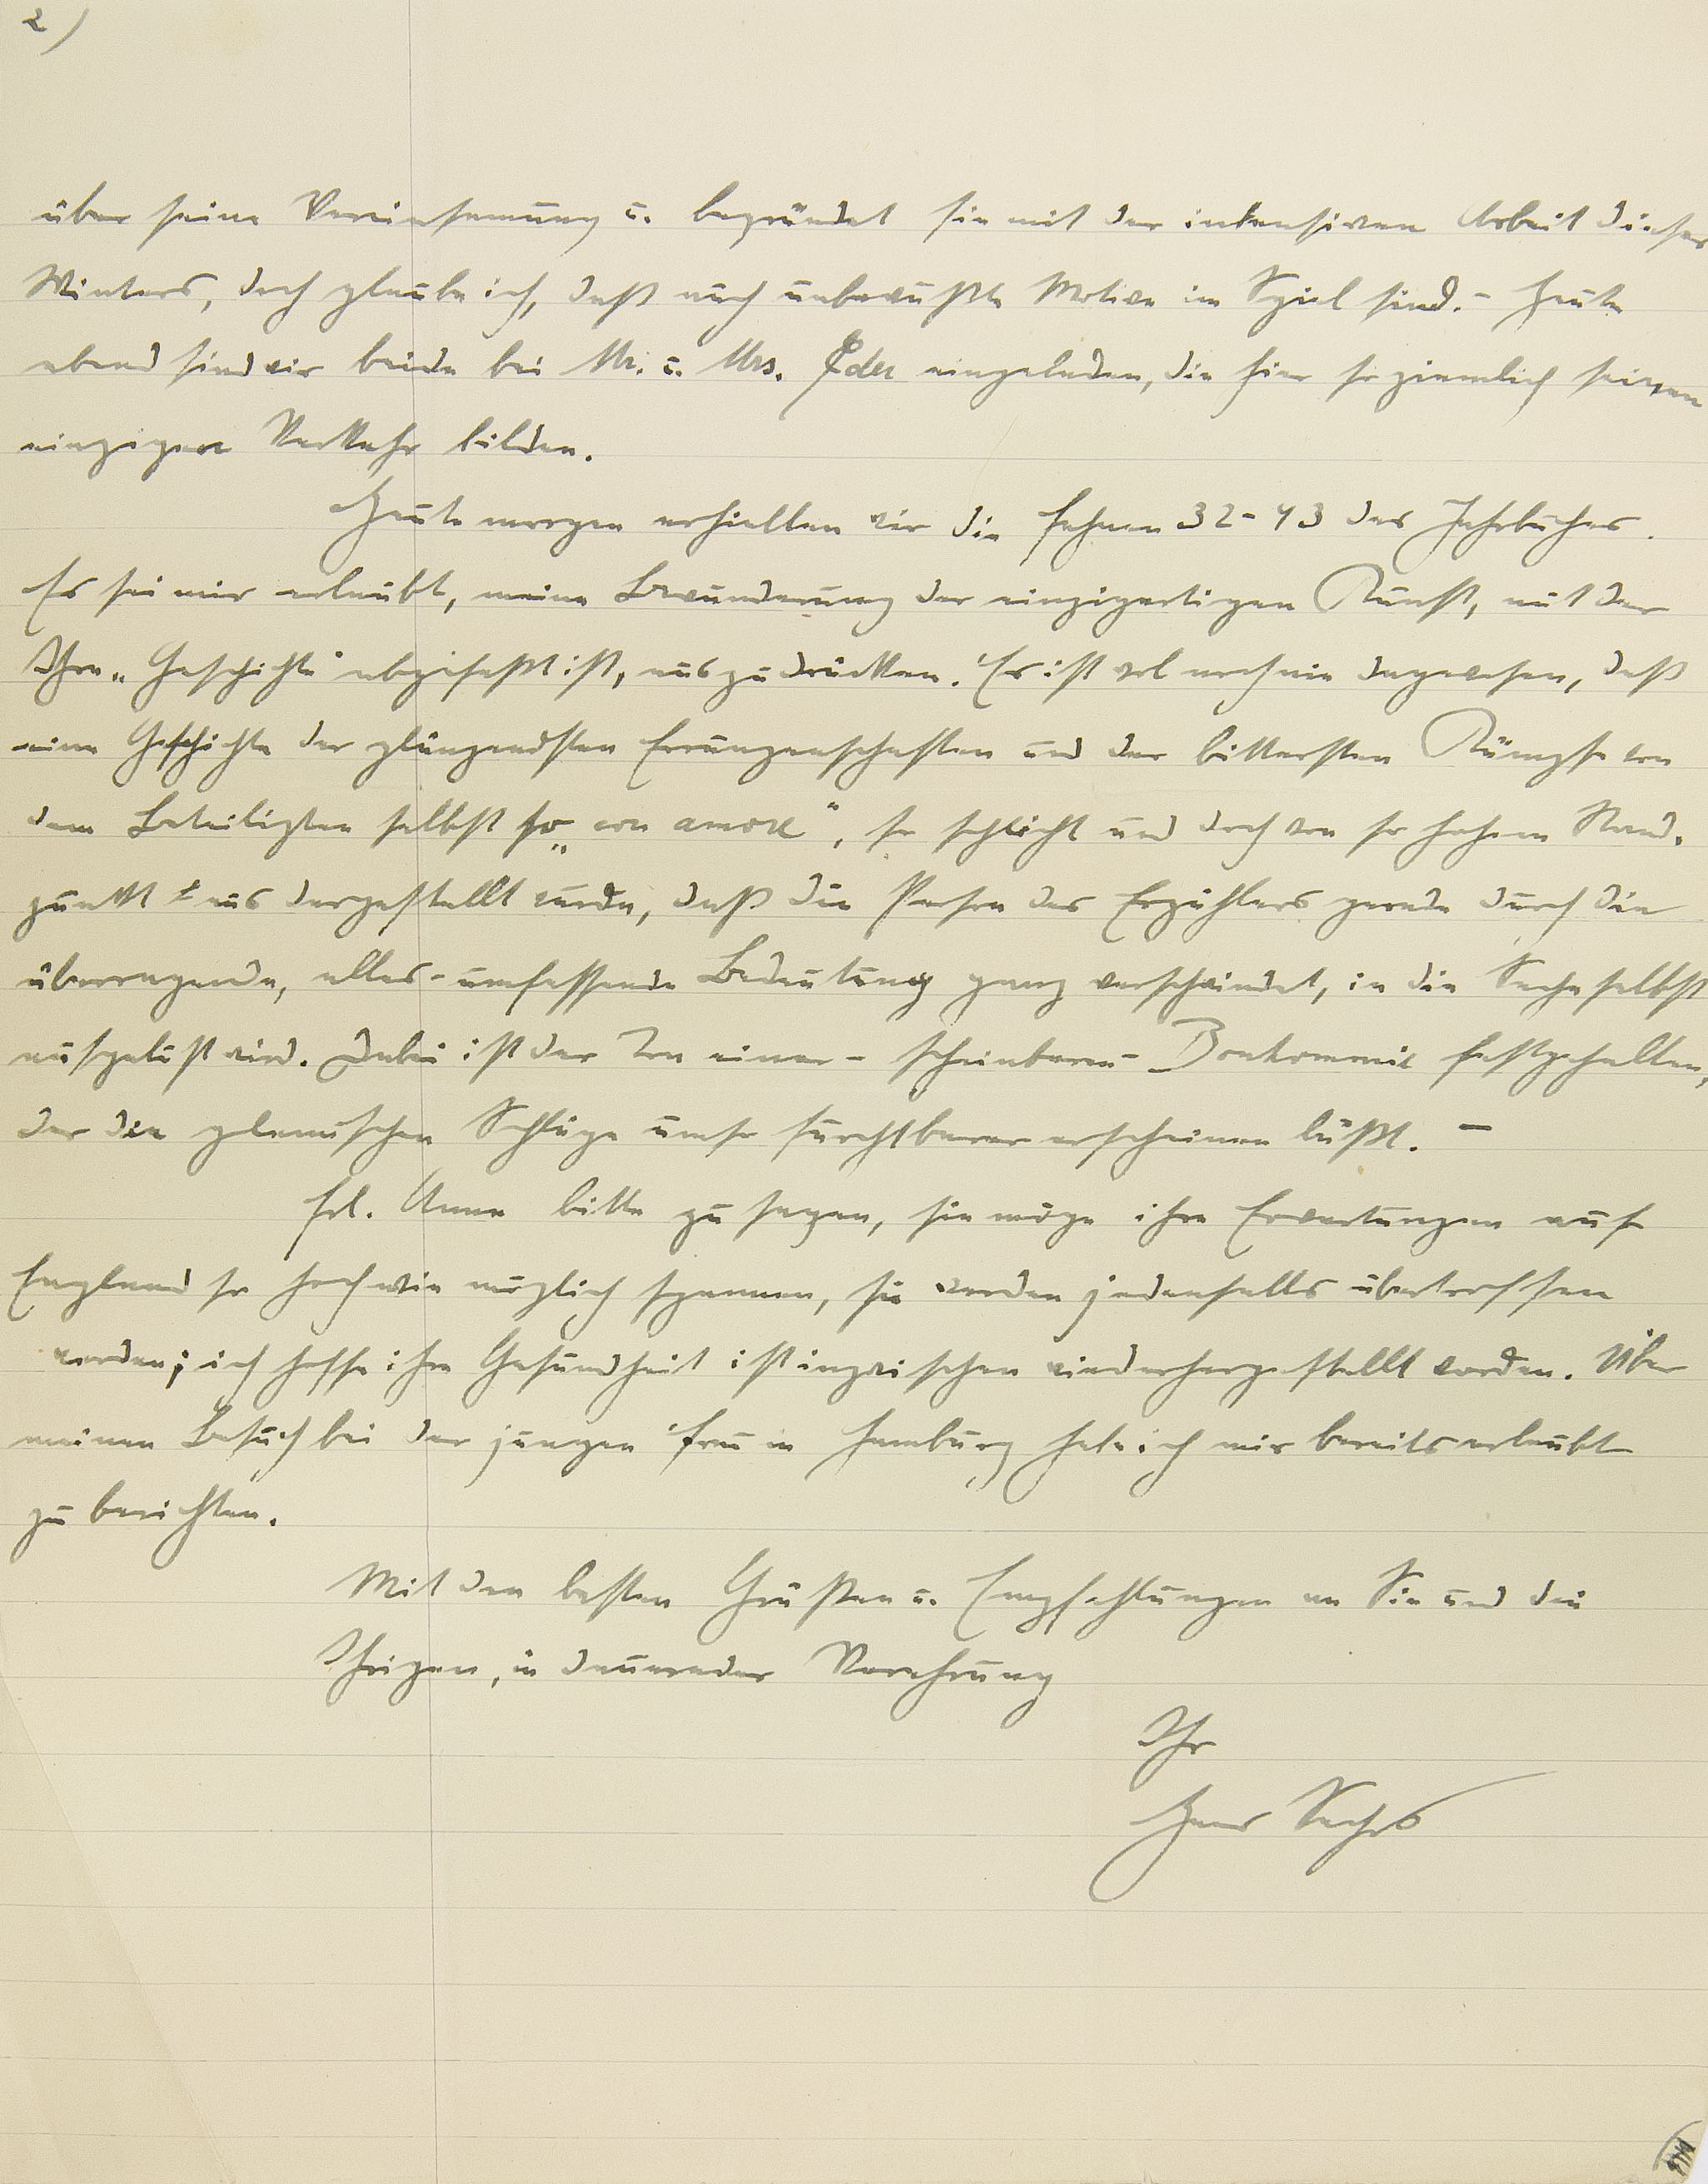 2)
über seine Vereinsamung u. begründet sie mit der intensiven Arbeit dieses
Winters, doch glaube ich, daß auch unbewußte Motive im Spiel sind. – Heute
abend sind wir beide bei Mr. u. Mrs. Eder eingeladen, die hier so ziemlich seinen
einzigen Verkehr bilden.
Heute morgen erhielten wir die Fahnen 32-43 des Jahrbuches.
Es sei mir erlaubt, meine Bewunderung der einzigartigen Kunst, mit der
Ihre „Geschichte" abgefaßt ist, auszudrücken. Es ist wol noch nie dagewesen, daß
eine Geschichte der glänzendsten Errungenschaften und der bittersten Kämpfe von
dem Beteiligten selbst so „con amore", so schlicht und doch von so hohem Stand-
punkt aus dargestellt wurde, daß die Person des Erzählers gerade durch die
überragende, alles-umfassende Bedeutung ganz verschwindet, in die Sache selbst
aufgelöst wird. Dabei ist der Ton einer – scheinbaren – Bonhommie festgehalten,
der die Schläge umso furchtbarer erscheinen läßt. –
Frl. Anna bitte zu sagen, sie möge ihre Erwartungen auf
England so hoch wie möglich spannen, sie werden jedenfalls übertroffen
werden; ich hoffe ihre Gesundheit ist inzwischen wiederhergestellt worden. Über
meinen Besuch bei der jungen Frau in Hamburg habe ich mir bereits erlaubt
zu berichten.
Mit den besten Grüßen u. Empfehlungen an Sie und die
Ihrigen, in dauernder Verehrung
Ihr
Hans Sachs